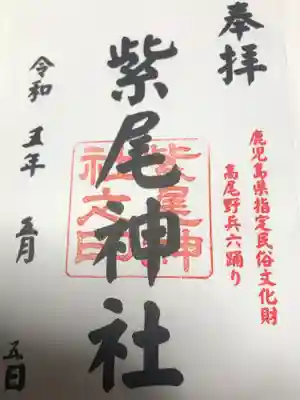 奉拝
鹿児島県指定民俗文化財
高尾野兵六踊り
紫尾神社
紫尾神
社之印
令和 五年 五月 五日